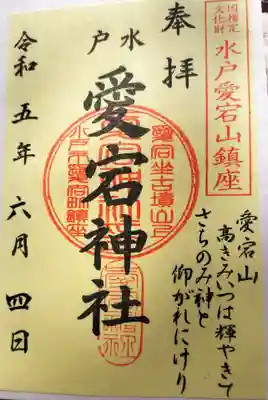 国指定
文化財
水戸愛宕山鎮座
奉拝
水戸
愛宕神社
愛宕坐古墳山乃
水戸市愛宕町鎮座
愛宕山
高きみいつは輝やきて
さちのみ神と
仰がれにけり
令和五年六月四日